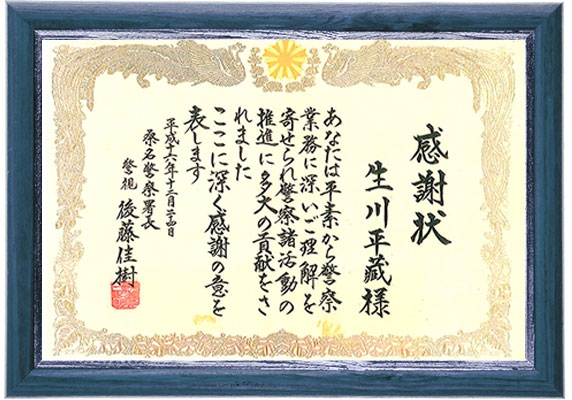 感謝状
生川平藏様
あなたは平素から警察
業務に深いご理解を
寄せられ警察諸活動の
推進に多大の貢献をさ
れました
ここに深く感謝の意を
表します
平成十六年十二月二十四日
桑名警察署長
警視 後藤佳樹